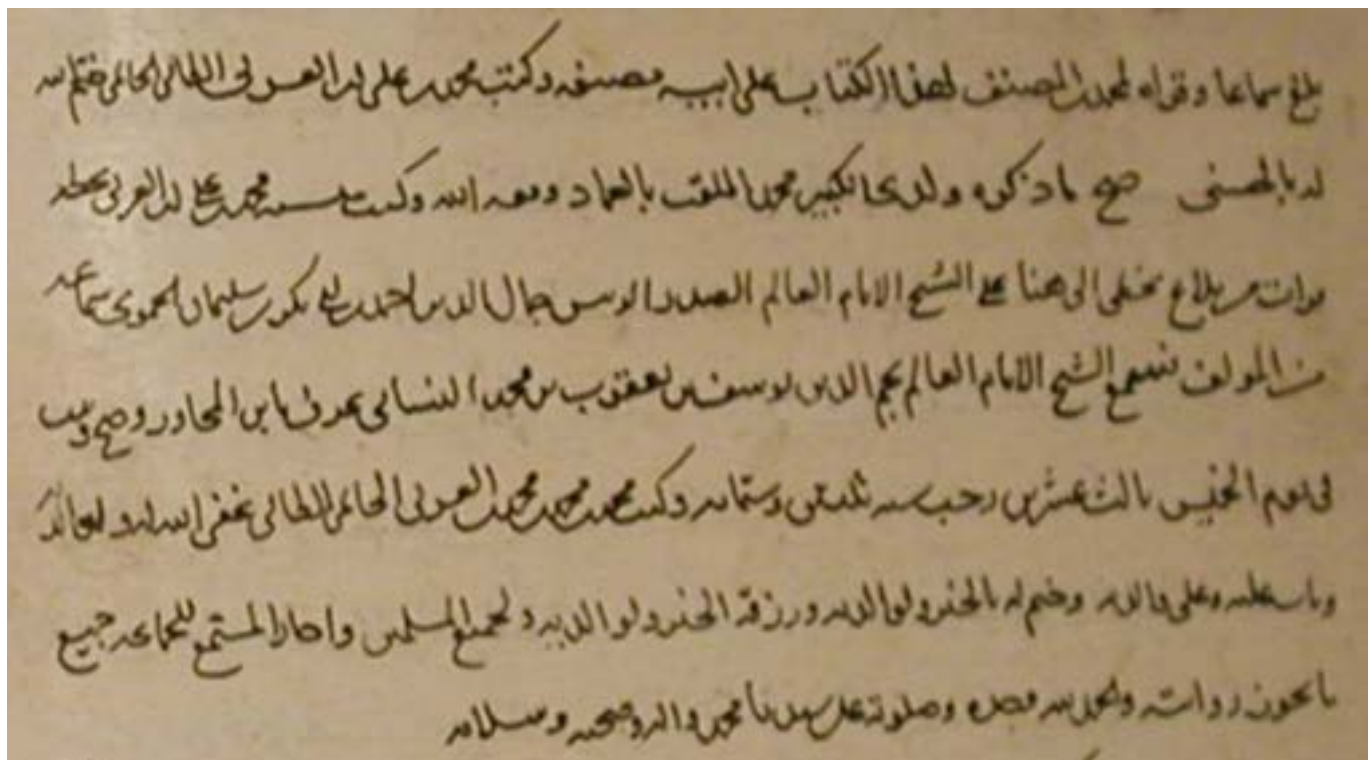 بلغ سماعا وقراه لمحمد بن المصنف لهذا الكتاب على ابيه مصنفه وكتب محمد بن على بن العربى الطائى الحاتمى ختم الله
له بالحسنى صح ما ذكره ولدى الكبير محمد الملقب بالعماد وفقه الله وكتب محمد بن على بن العربى بخطه
قرات من بلاغ بخطى الى هنا على الشيخ الامام العالم الصدر الرئيس جمال الدين احمد بن ابى بكر بن سليمان الحموى سماعه
من المولف فسمع الشيخ الامام العالم نجم الدين يوسف بن يعقوب بن محمد الشيبانى يعرف بابن المجاور وصح وثبت
فى يوم الخميس ثالث عشرين رجب سنه وستمائه وكتب محمد بن محمد بن محمد بن العربى الحاتمى الطائى غفر الله له ولوالديه
وتاب عليه وعلى والديه وختم له بالخير ولوالديه ورزقه الخير ولوالديه ولجميع المسلمين واجاز المستمع للجماعه جميع
ما يجوز روايته والحمد لله وحده وصلوته على سيدنا محمد واله وصحبه وسلامه